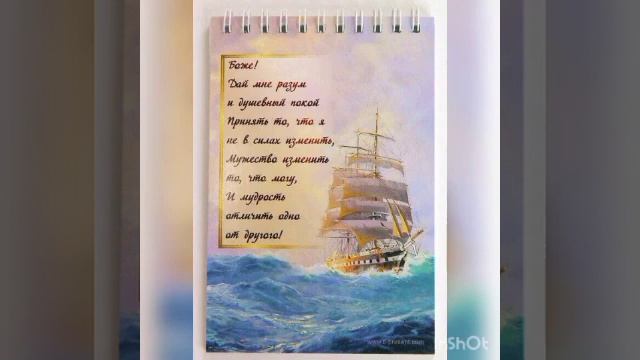 Боже!
Дай мне разум
и душевный покой
Принять то, что я
не в силах изменить,
Мужество изменить
то, что могу,
И мудрость
отличить одно
от другого!